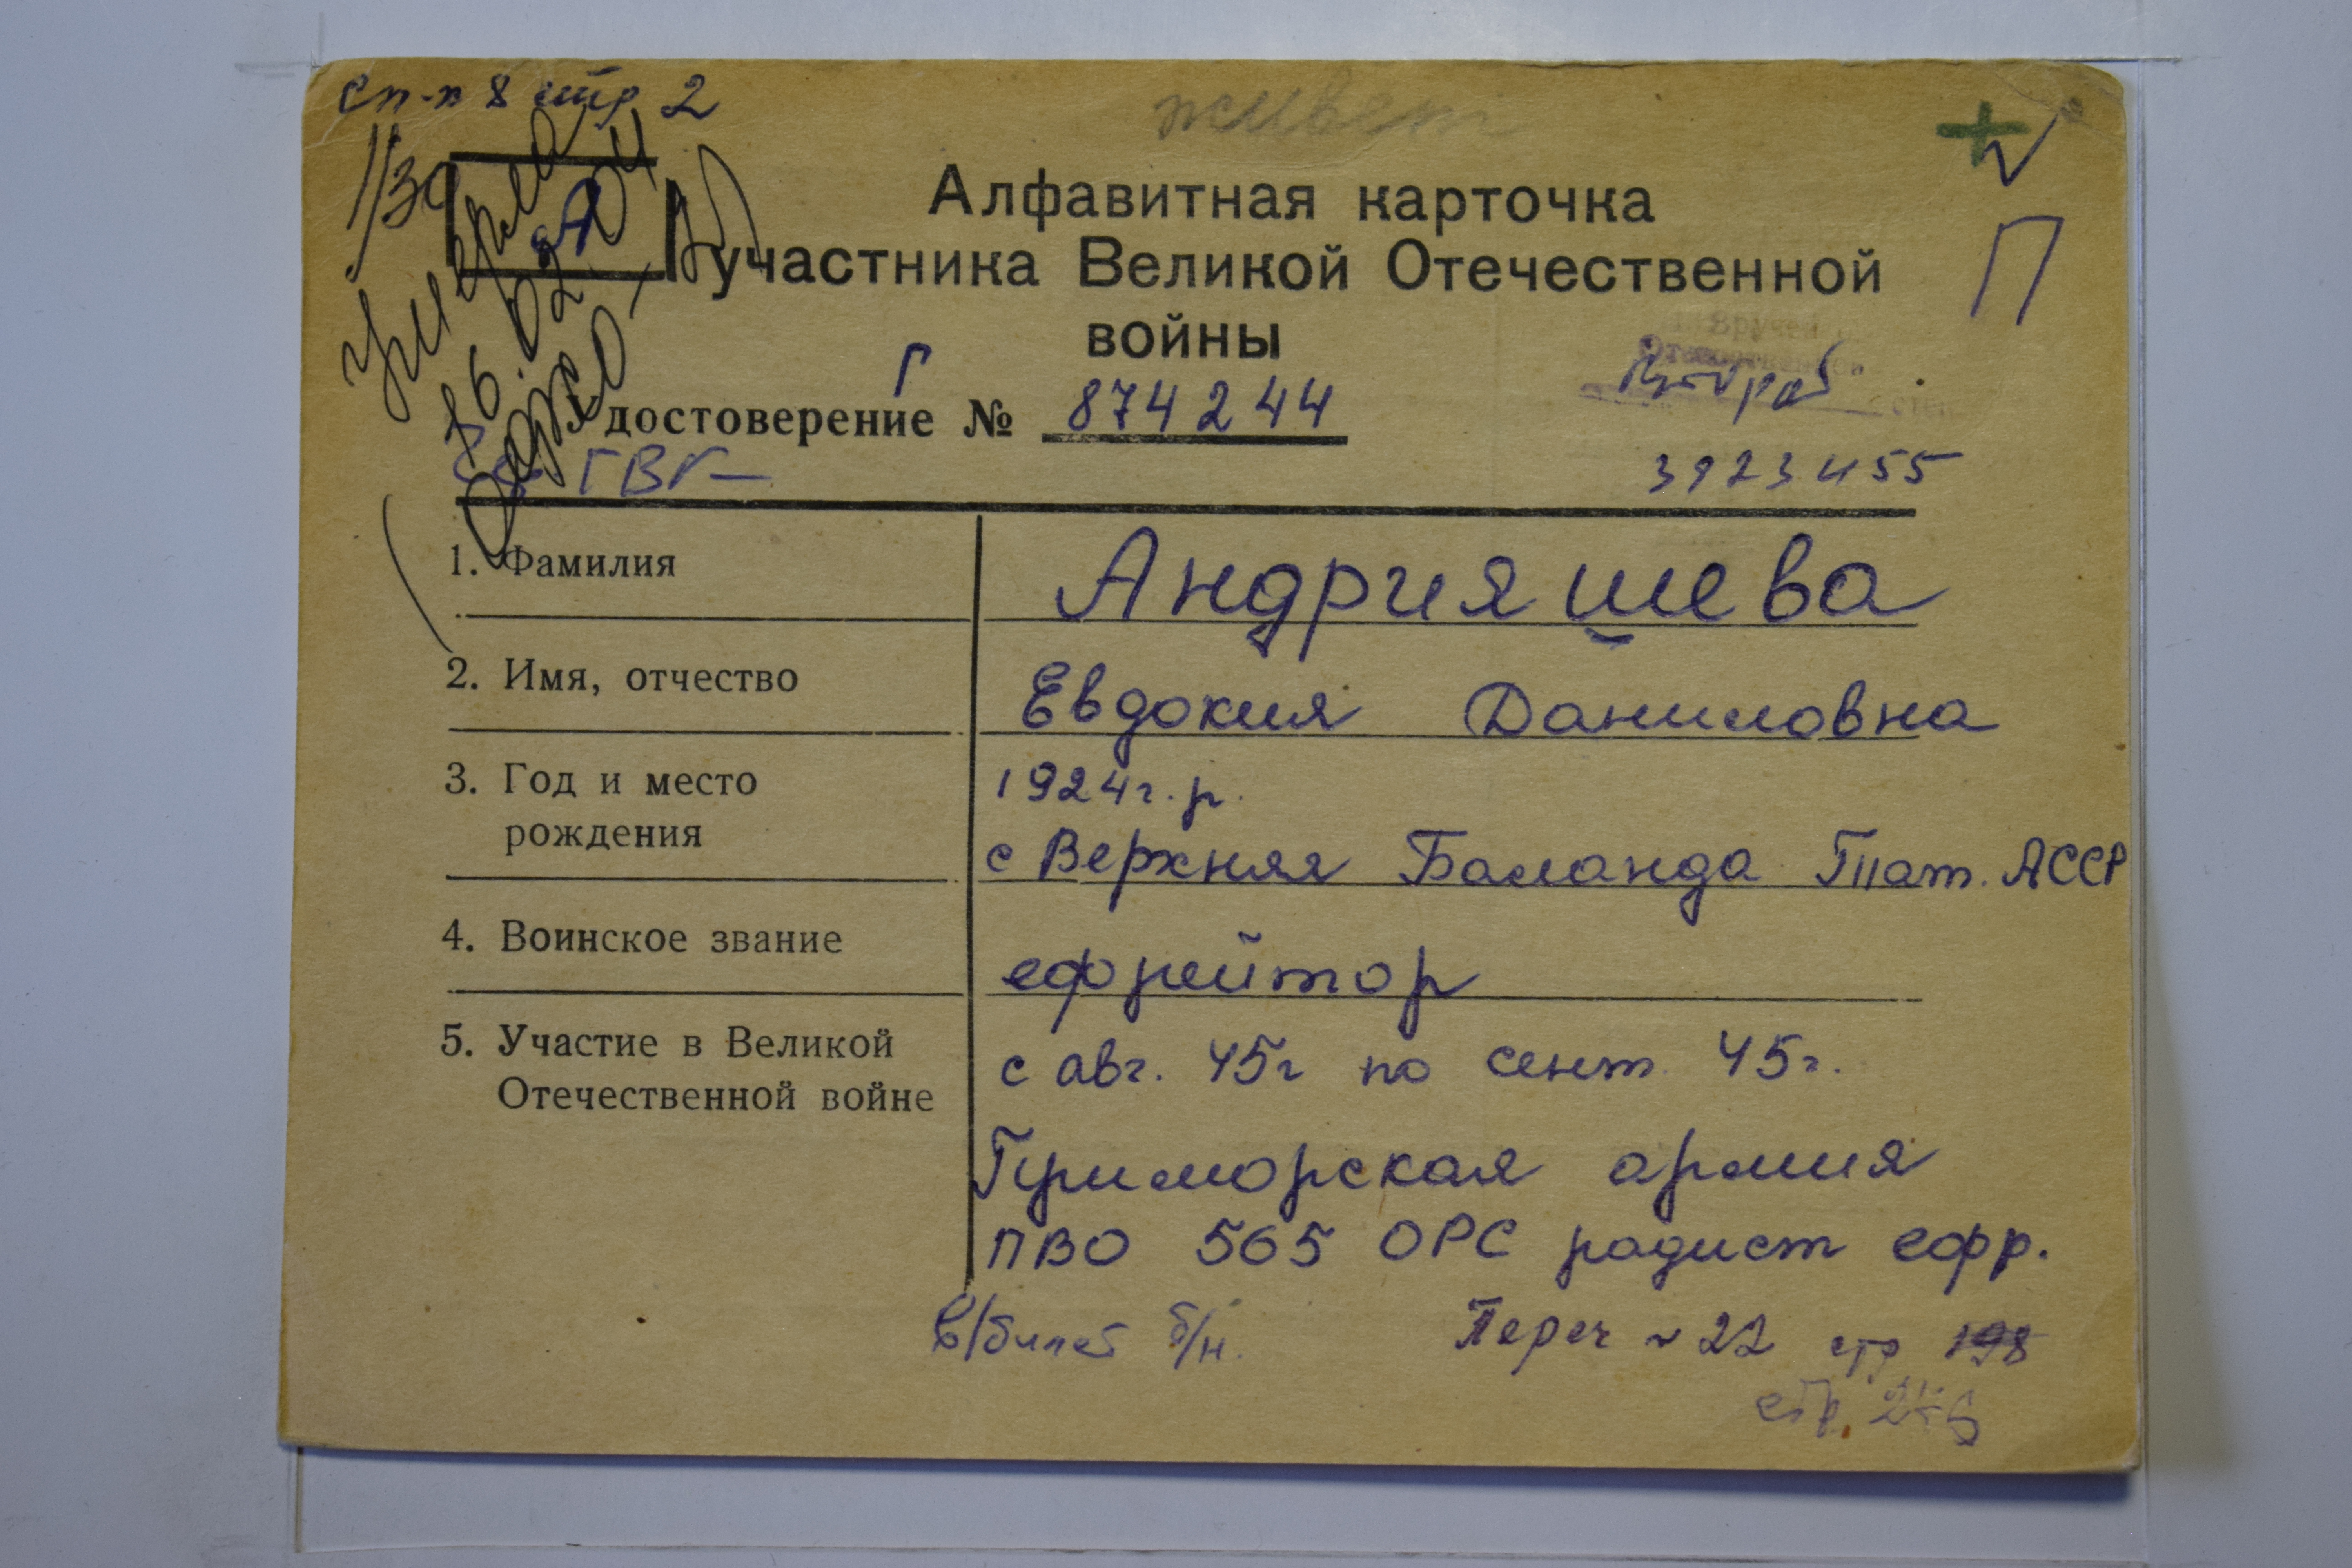 сп-к 8 стр 2
живет
+
П
1/30
А
умерла
16.02.04
Алфавитная карточка
участника Великой Отечественной
войны
Г
Удостоверение № 874244
ГВГ
3923455
1. Фамилия Андрияшева
2. Имя, отчество Евдокия Даниловна
3. Год и место рождения 1924г.р.
с Верхняя Баланда Тат. АССР
4. Воинское звание ефрейтор
5. Участие в Великой Отечественной войне с авг. 45г по сент. 45г.
Приморская армия
ПВО 565 ОРС радист ефр.
в/билет б/н. Переч ~ 22 стр 198
стр.